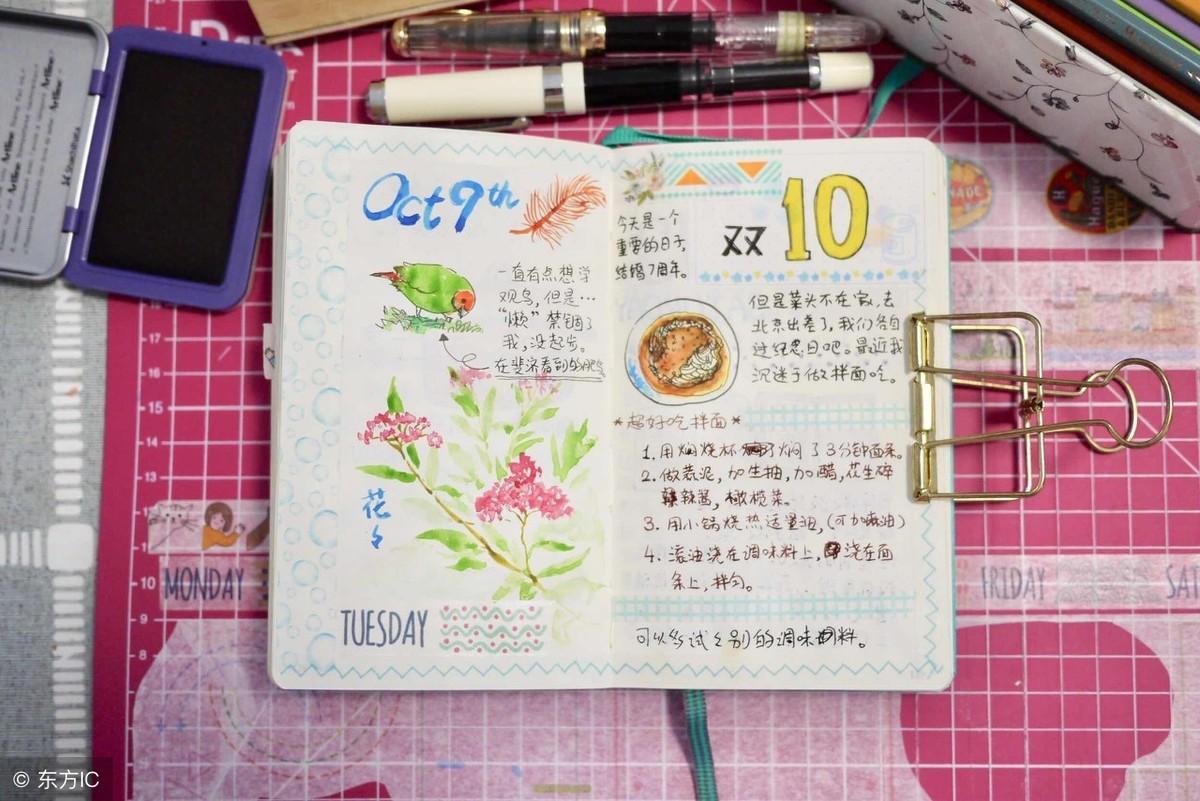 Oct 9th
一直有点想学
观鸟，但是…
“懒”禁锢了
我，没起步。
在斐济看到的肥鸟
花
TUESDAY
今天是一个
重要的日子，
结婚7周年。
双10
但是菜头不在家，去
北京出差了，我们各自
过纪念日吧。最近我
沉迷于做拌面吃。
*超好吃拌面*
1. 用焖烧杯焖了3分钟面条。
2. 做蒜泥，加生抽，加醋，花生碎
辣酱，橄榄菜。
3. 用小锅烧热适量油，(可加麻油)
4. 滚油浇在调味料上，浇在面
条上，拌匀。
可以多试试别的调味料。
MONDAY
FRIDAY
SAT
17
16
15
14
13
11
10
9
8
7
6
Artline
© 东方IC